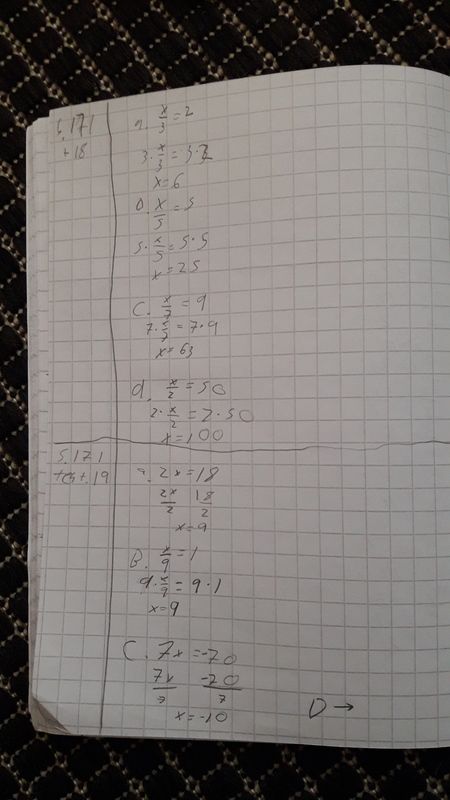 S.171
+18
a. x/3 = 2
3·x/3 = 3·2
x=6
b. x/5 = 5
5·x/5 = 5·5
x=25
C. x/7 = 9
7·x/7 = 7·9
x=63
d. x/2 = 50
2·x/2 = 2·50
x=100
S.171
19
a. 2x=18
2x/2 18/2
x=9
B. x/9 = 1
9·x/9 = 9·1
x=9
C. 7x=-70
7x/7 -70/7
x=-10
D →